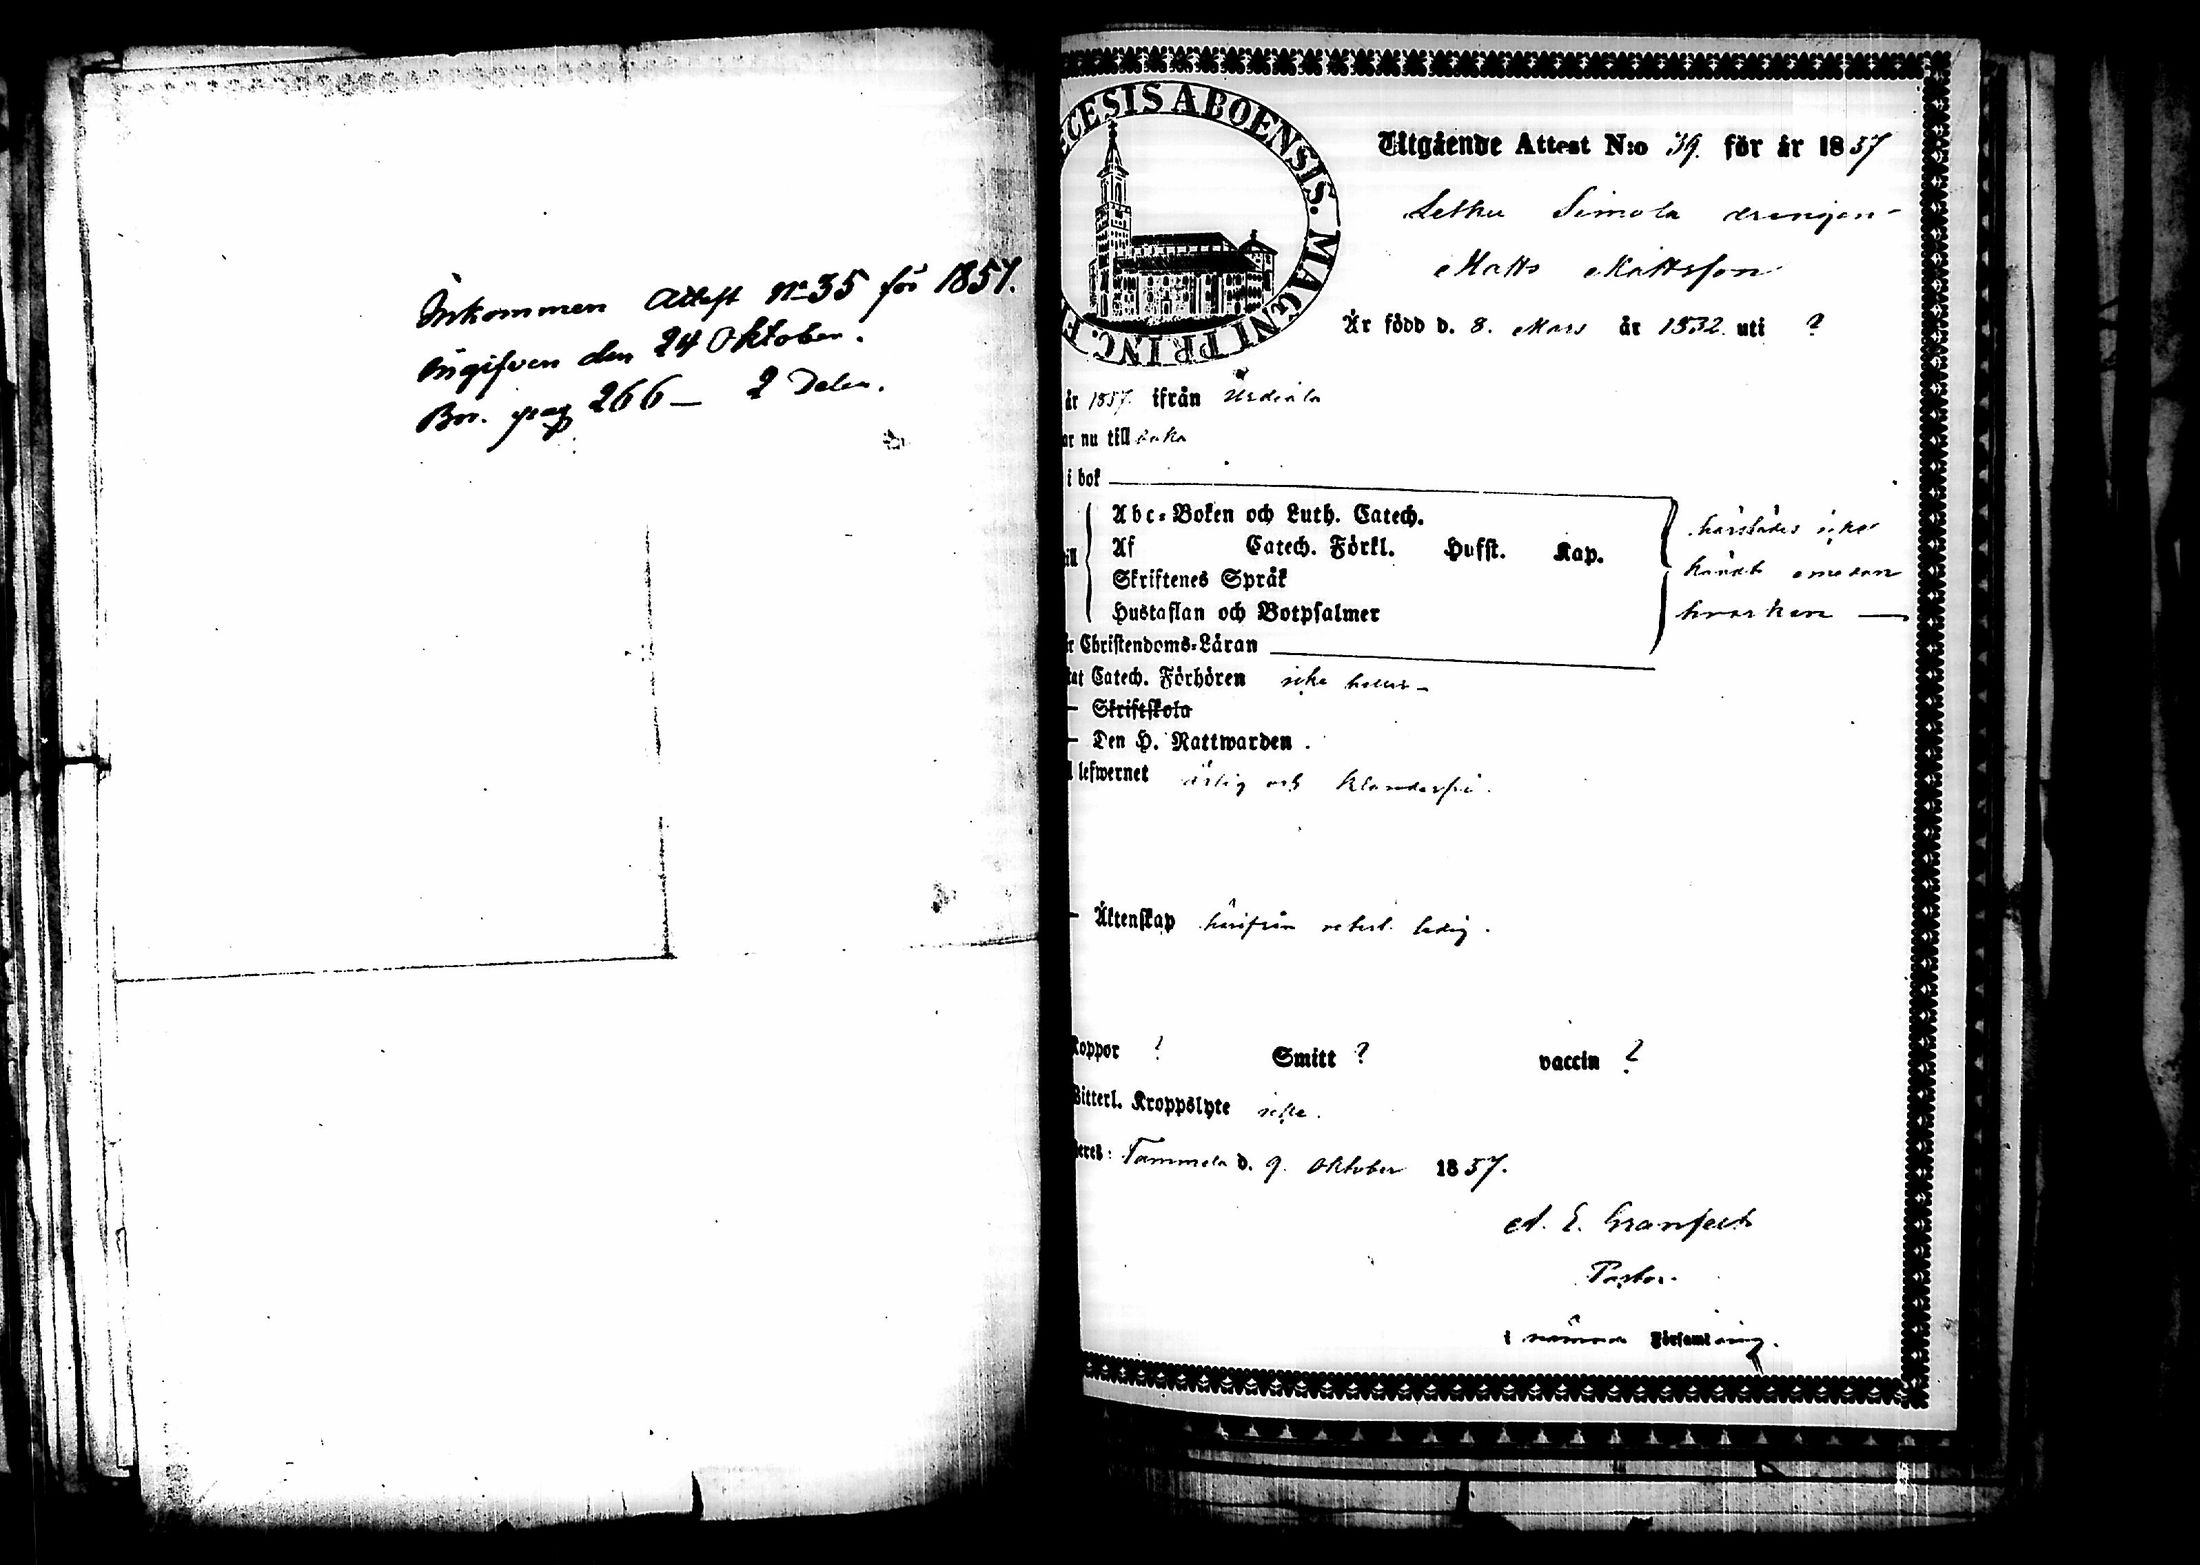 Inkommen Attest No 35 för 1857.
Ingifven den 24 Oktober.
Bor. pag 266 — 2 Delen.
ECESIS ABOENSIS. MAGNI PRINC. F
Utgående Attest N:o 39. för år 1857
Letku Simola drengen
Matts Mattsson
Är född d. 8. Mars år 1832. uti ?
år 1857. ifrån Urdiala
ar nu till baka
i bok
Abc-Boken och Luth. Catech.
Af Catech. Förkl. Husst. Kap.
Skriftenes Språk
Hustaflan och Botpsalmer
härstädes icke
kändt emedan
hvarken —
r Christendoms-Läran
tat Catech. Förhören icke heller
— Skriftskola
— Den H. Nattwarden .
lefwernet ärlig och klanderfri.
— Äktenskap härifrån ledig.
Koppor ? Smitt ? vaccin ?
Witterl. Kroppslyte icke.
Tammela d. 9. Oktober 1857.
A. E. Granfelt
Pastor.
i nämnde Församling.